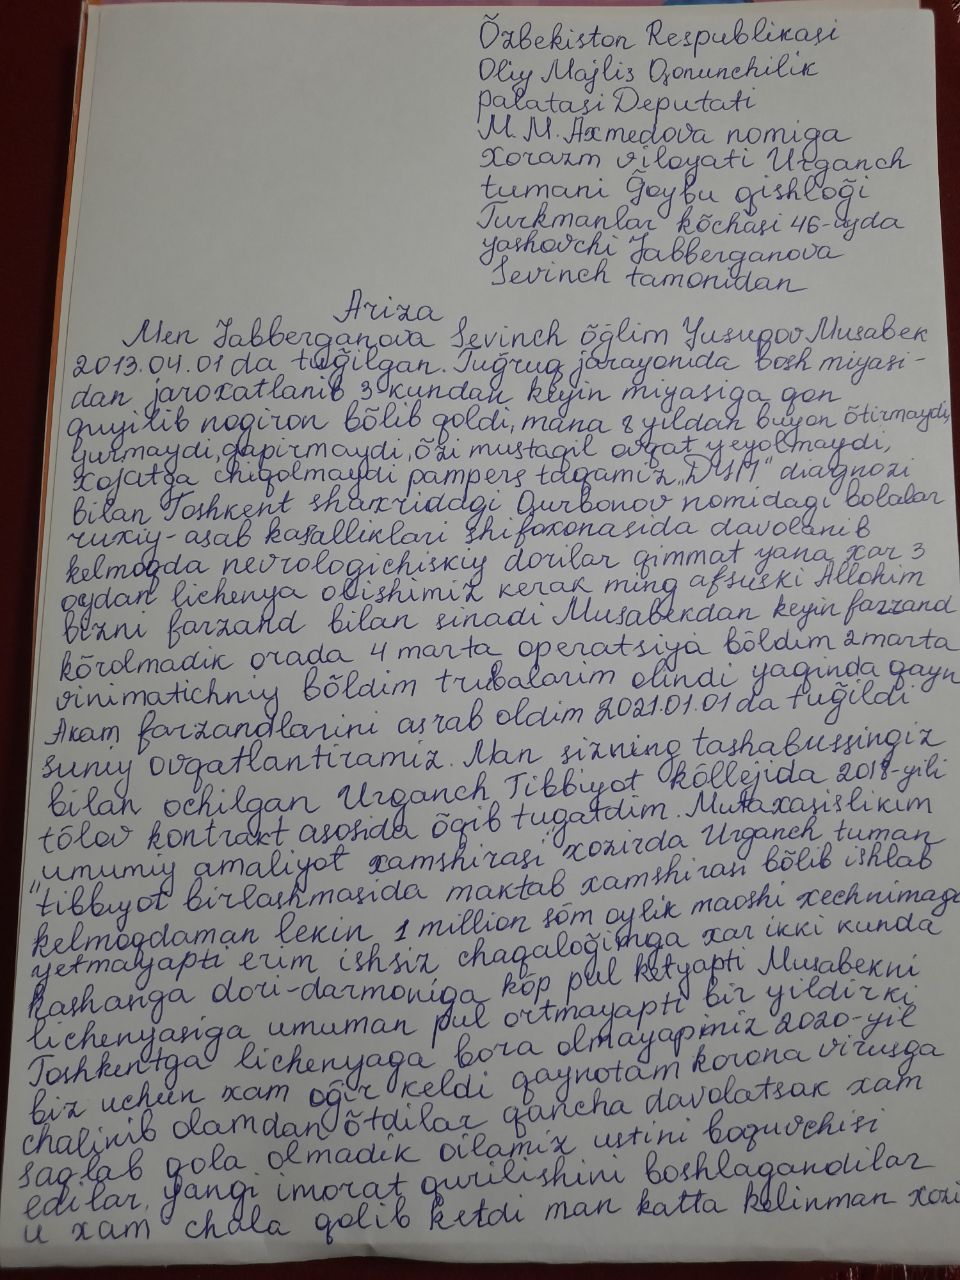 Õzbekiston Respublikasi
Oliy Majlis Qonunchilik
palatasi Deputati
M. M. Axmedova nomiga
Xorazm viloyati Urganch
tumani Ğoybu qishloği
Turkmanlar kõchasi 46-uyda
yashovchi Jabberganova
Sevinch tamonidan
Ariza
Men Jabberganova Sevinch õğlim Yusupov Musabek
2013.04.01 da tuğilgan. Tuğruq jarayonida bosh miyasi-
dan jaroxatlanib 3 kundan keyin miyasiga qon
quyilib nogiron bõlib qoldi, mana 8 yildan buyon õtirmaydi,
yurmaydi, gapirmaydi, õzi mustaqil ovqat yeyolmaydi,
xojatga chiqolmaydi pampers taqamiz "DSM" diagnozi
bilan Toshkent shaxridagi Qurbonov nomidagi bolalar
ruxiy-asab kasalliklari shifoxonasida davolanib
kelmoqda nevrologichiskiy dorilar qimmat yana xar 3
oydan lichenya olishimiz kerak ming afsuski Allohim
bizni farzand bilan sinadi Musabekdan keyin farzand
kõrolmadik orada 4 marta operatsiya bõldim 2 marta
vinimatichniy bõldim trubalarim olindi yaqinda qayn
Akam farzandlarini asrab oldim 2021.01.01 da tuğildi
suniy ovqatlantiramiz. Man sizning tashabussingiz
bilan ochilgan Urganch Tibbiyot kõllejida 2018-yili
tõlov kontrakt asosida õqib tugatdim. Mutaxasislikim
"umumiy amaliyot xamshirasi" xozirda Urganch tuman
tibbiyot birlashmasida maktab xamshirasi bõlib ishlab
kelmoqdaman lekin 1 million sõm oylik maoshi xechnimaga
yetmayapti erim ishsiz chaqaloğimga xar ikki kunda
kashanga dori-darmoniga kõp pul ketyapti Musabekni
lichenyasiga umuman pul ortmayapti bir yildirki
Toshkentga lichenyaga bora olmayapmiz 2020-yil
biz uchun xam oğir keldi qaynotam korona virusga
chalinib olamdan õtdilar qancha davolatsak xam
saqlab qola olmadik oilamiz ustini boquvchisi
edilar, yangi imorat qurilishini boshlagandilar
u xam chala qolib ketdi man katta kelinman xozi